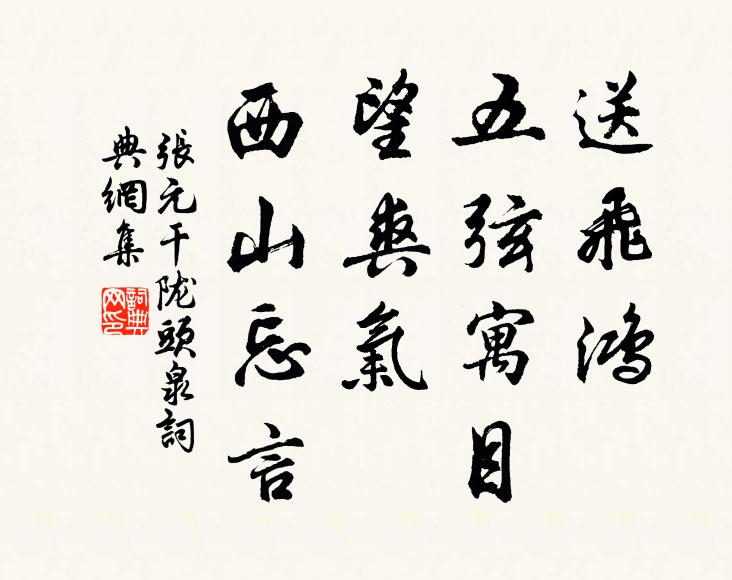 送飛鴻
五弦寓目
望爽氣
西山忘言
張元干陇頭泉詞
典網集
詞典
网印